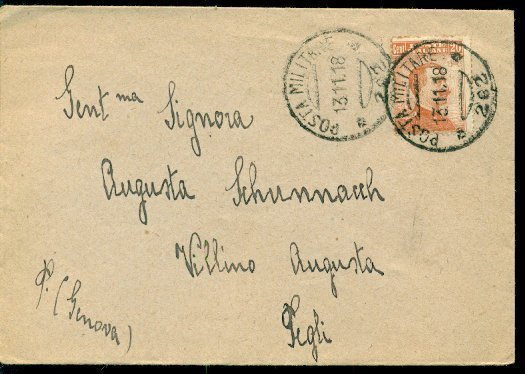 POSTA MILITARE
13.11.18
POSTA MILITARE 282
13.11.18
Cent 20
Gent ma Signora
Augusta Schunnacch
Villino Augusta
Pegli
P. (Genova)